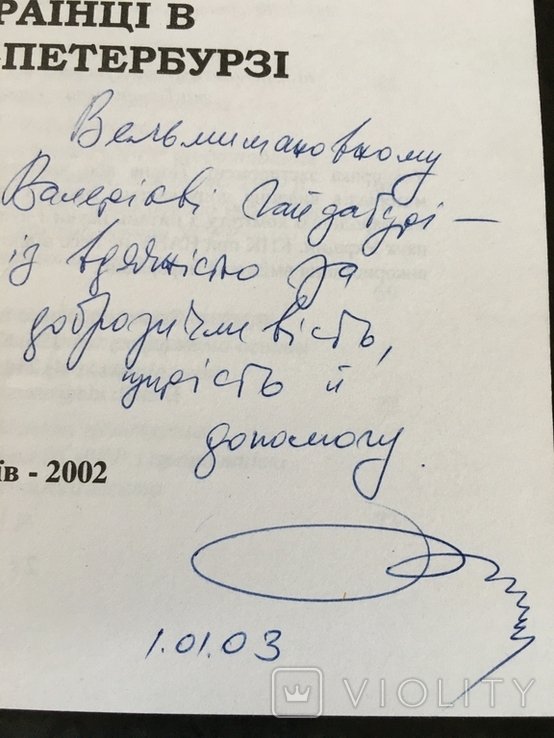 РАЇНЦІ В
-ПЕТЕРБУРЗІ
Вельмишановному
Валерієві Гайдабурі —
із вдячністю за
доброзичливість,
щирість й
допомогу.
ів - 2002
1.01.03
VIOLITY